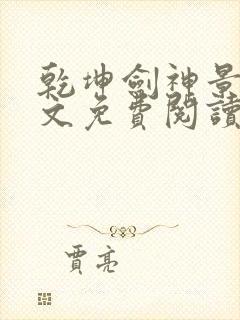 乾坤劍神景
文免費閱讀
賈亮